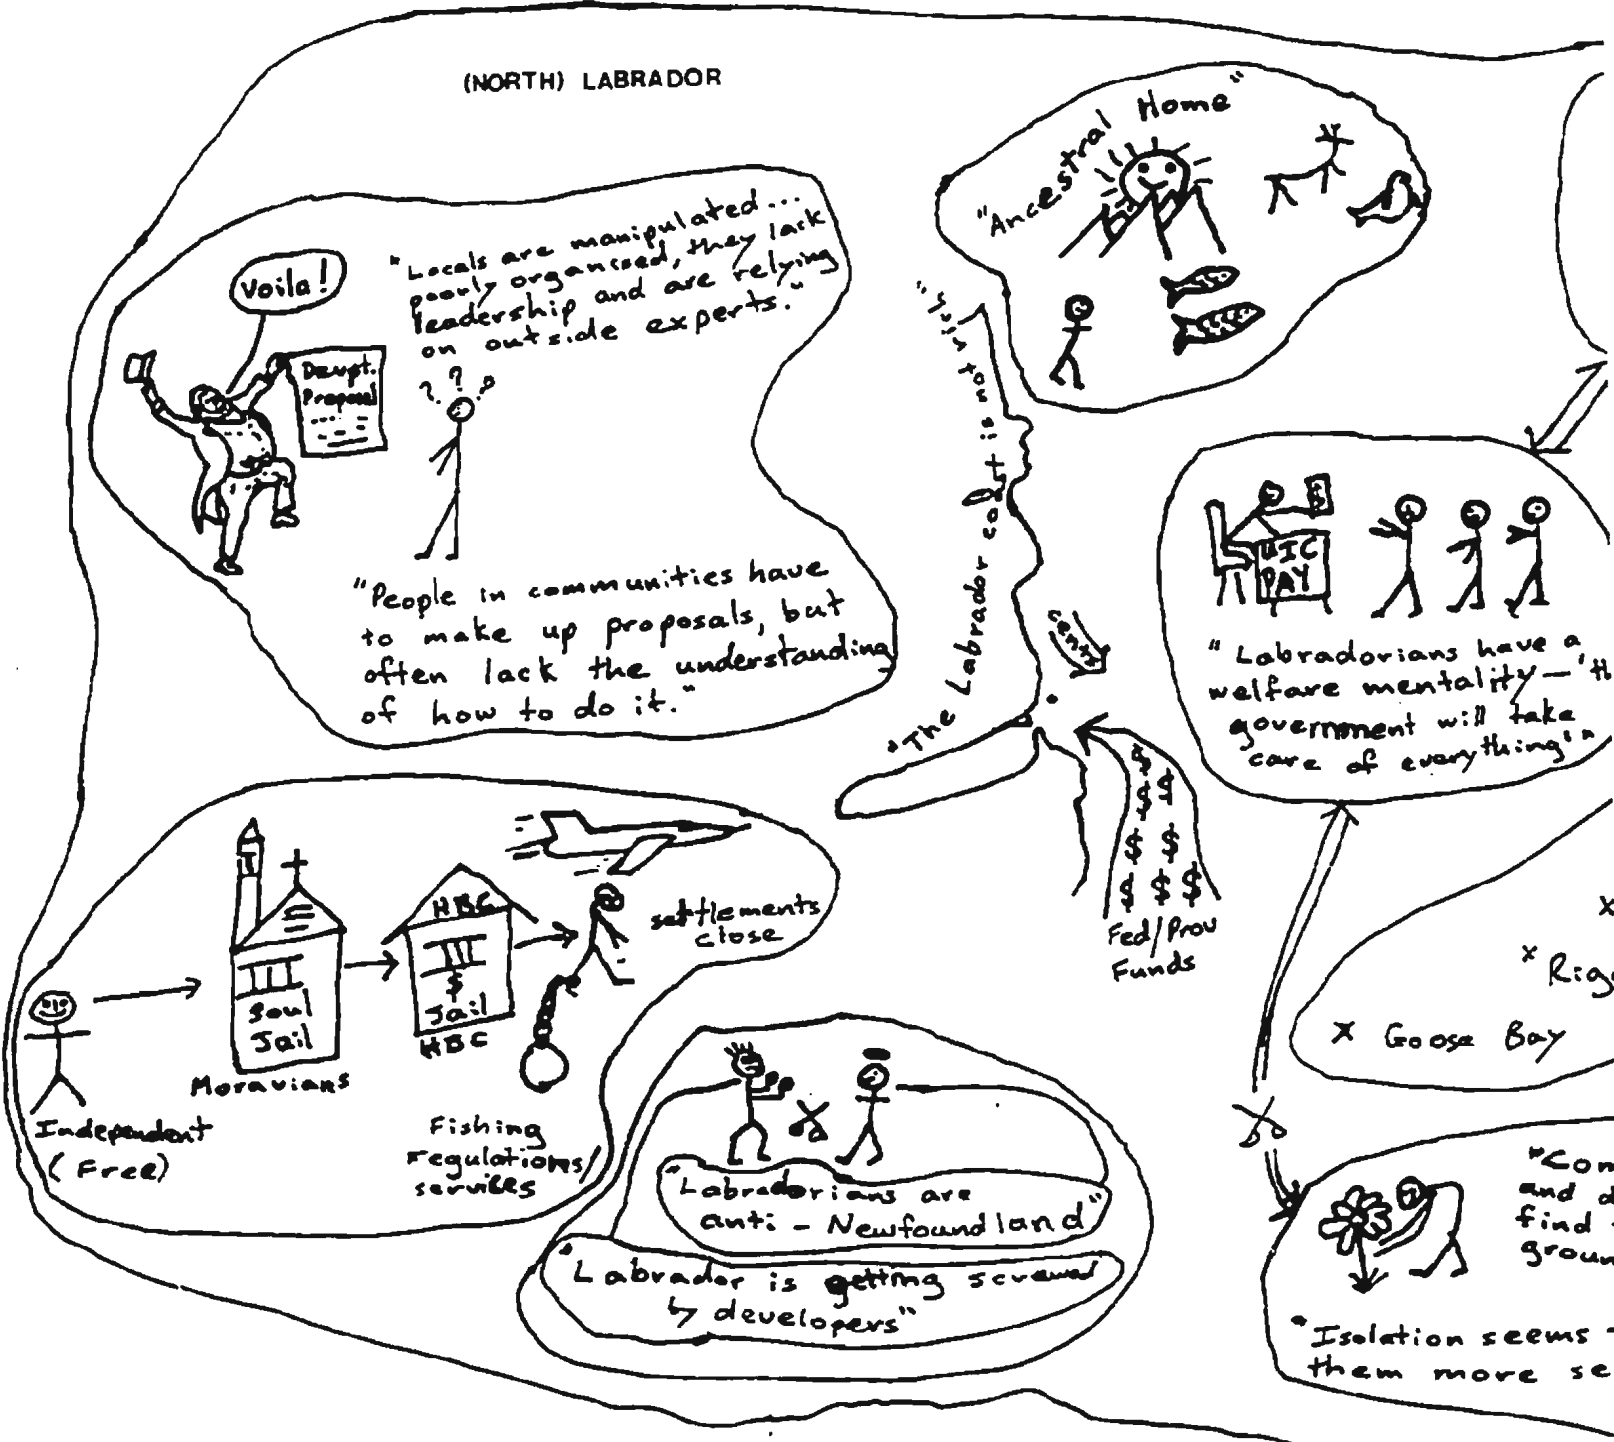 (NORTH) LABRADOR
"Ancestral Home"
Voila!
"Locals are manipulated...
poorly organised, they lack
leadership and are relying
on outside experts."
Devpt.
Proposal
? ? ?
"People in communities have
to make up proposals, but
often lack the understanding
of how to do it."
"The Labrador coast is not
$
UIC
PAY
"Labradorians have a
welfare mentality — 'th
government will take
care of everything'"
$ $ $ $ $ $ $ $ $
Fed/Prov
Funds
HBC
$
Jail
HBC
Soul
Jail
Moravians
settlements
close
Independent
(Free)
Fishing
regulations/
services
x
x Rig
x Goose Bay
"Labradorians are
anti - Newfoundland"
"Labrador is getting screwed
by developers"
"Com
and d
find
groun
"Isolation seems
them more se